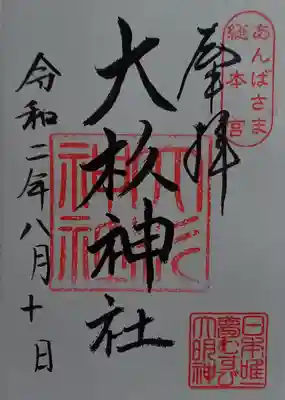 あんばさま
総本宮
奉拝
大杉神社
大杉
神社
令和二年八月十日
日本唯一
夢むすび
大明神